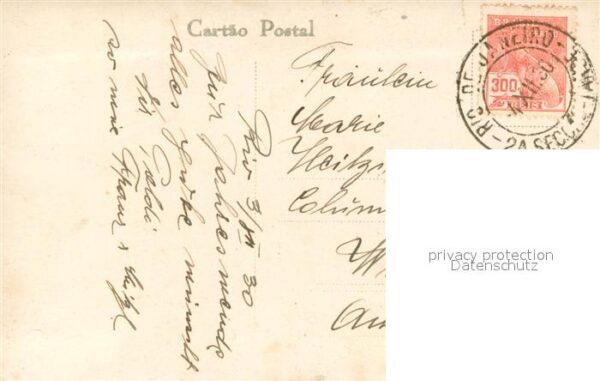 Cartão Postal
BRASIL
300
RIO DE JANEIRO
XII 30
2A SEC
Fräulein
Marie
Heitz
Colum
W
Au
Rio 3/XII 30
zur Jahreswende
alles Gute wünscht
dir Poldi
so wie Franz &
privacy protection
Datenschutz